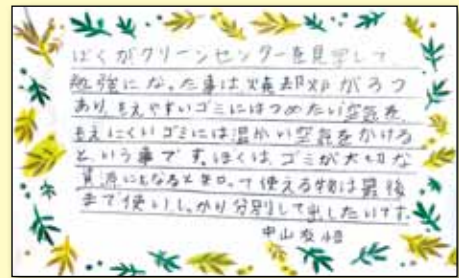 ぼくがクリーンセンターを見学して、
勉強になった事は、焼却炉が3つ
あり、もえやすいゴミにはつめたい空気を、
もえにくいゴミには温かい空気をかける
という事です。ぼくは、ゴミが大切な
資源にもなると知って使える物は最後
まで使い、しっかり分別して出したいです。
中山 4年